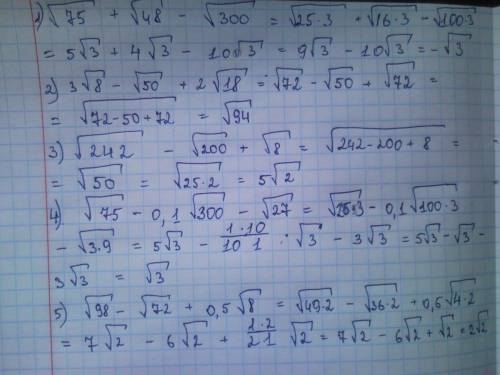 1) √75 + √48 - √300 = √25·3 + √16·3 - √100·3
= 5√3 + 4√3 - 10√3 = 9√3 - 10√3 = -√3
2) 3√8 - √50 + 2√18 = √72 - √50 + √72 =
= √72-50+72 = √94
3) √242 - √200 + √8 = √242-200+8 =
= √50 = √25·2 = 5√2
4) √75 - 0,1√300 - √27 = √25·3 - 0,1√100·3
- √3·9 = 5√3 - 1·10/10 1 · √3 - 3√3 = 5√3 - √3 -
3√3 = √3
5) √98 - √72 + 0,5√8 = √49·2 - √36·2 + 0,5√4·2
= 7√2 - 6√2 + 1·2/2 1 √2 = 7√2 - 6√2 + √2 = 2√2